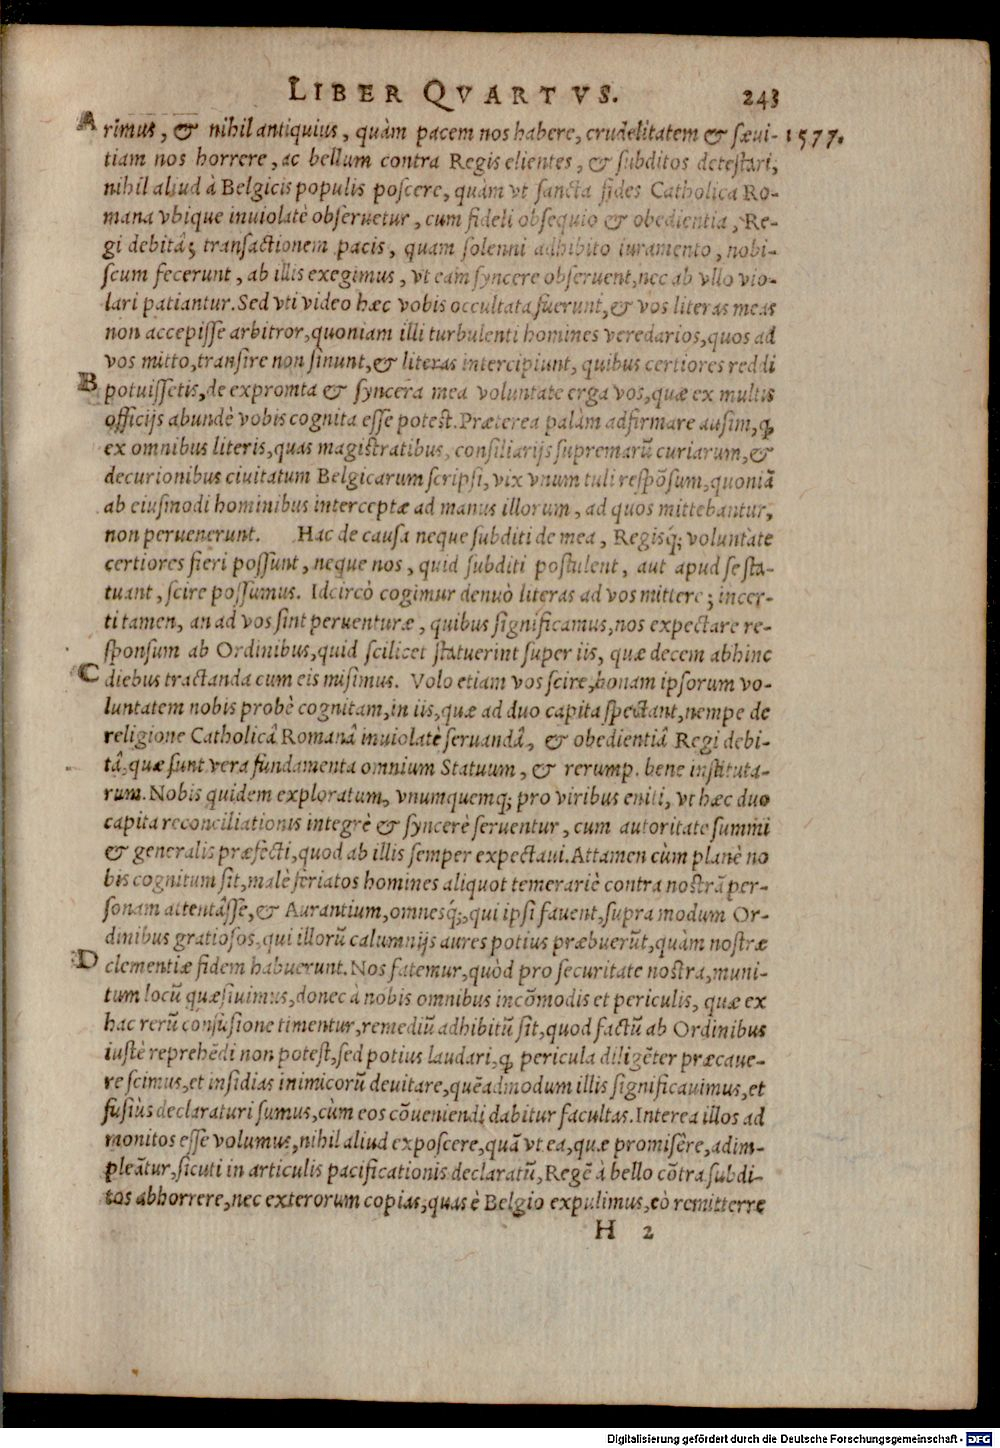 LIBER QVARTVS. 243
A rimus, & nihil antiquius, quàm pacem nos habere, crudelitatem & sævi- 1577.
tiam nos horrere, ac bellum contra Regis clientes, & subditos detestari,
nihil aliud à Belgicis populis poscere, quàm vt sancta fides Catholica Ro-
mana vbique inuiolatè obseruetur, cum fideli obsequio & obedientia, Re-
gi debitâ; transactionem pacis, quam solenni adhibito iuramento, nobi-
scum fecerunt, ab illis exegimus, vt eam syncere obseruent, nec ab vllo vio-
lari patiantur. Sed vti video hæc vobis occultata fuerunt, & vos literas meas
non accepisse arbitror, quoniam illi turbulenti homines veredarios, quos ad
vos mitto, transire non sinunt, & literas intercipiunt, quibus certiores reddi
B potuissetis, de expromta & syncera mea voluntate erga vos, quæ ex multis
officijs abundè vobis cognita esse potest. Præterea palàm adfirmare ausim, q̃
ex omnibus literis, quas magistratibus, consiliarijs supremarũ curiarum, &
decurionibus ciuitatum Belgicarum scripsi, vix vnum tuli respõsum, quoniã
ab eiusmodi hominibus interceptæ ad manus illorum, ad quos mittebantur,
non peruenerunt. Hac de causa neque subditi de mea, Regisq́; voluntate
certiores fieri possunt, neque nos, quid subditi postulent, aut apud se sta-
tuant, scire possumus. Idcircò cogimur denuò literas ad vos mittere; incer-
ti tamen, an ad vos sint peruenturæ, quibus significamus, nos expectare re-
sponsum ab Ordinibus, quid scilicet statuerint super iis, quæ decem abhinc
C diebus tractanda cum eis misimus. Volo etiam vos scire, bonam ipsorum vo-
luntatem nobis probè cognitam, in iis, quæ ad duo capita spectant, nempe de
religione Catholicâ Romanâ inuiolatè seruandâ, & obedientiâ Regi debi-
tâ, quæ sunt vera fundamenta omnium Statuum, & rerump. bene instituta-
rum. Nobis quidem exploratum, vnumquemq; pro viribus eniti, vt hæc duo
capita reconciliationis integrè & syncerè seruentur, cum autoritate summi
& generalis præfecti, quod ab illis semper expectaui. Attamen cùm planè no
bis cognitum sit, malè feriatos homines aliquot temerariè contra nostrã per-
sonam attentâsse, & Aurantium, omnesq́;, qui ipsi fauent, supra modum Or-
dinibus gratiosos, qui illorũ calumnijs aures potius præbuerũt, quàm nostræ
D clementiæ fidem habuerunt. Nos fatemur, quòd pro securitate nostra, muni-
tum locũ quæsiuimus, donec à nobis omnibus incõmodis et periculis, quæ ex
hac rerũ confusione timentur, remediũ adhibitũ sit, quod factũ ab Ordinibus
iustè reprehẽdi non potest, sed potius laudari, q̃ pericula diligẽter præcaue-
re scimus, et insidias inimicorũ deuitare, quẽadmodum illis significauimus, et
fusiùs declaraturi sumus, cùm eos cõueniendi dabitur facultas. Interea illos ad
monitos esse volumus, nihil aliud exposcere, quã vt ea, quæ promisêre, adim-
pleãtur, sicuti in articulis pacificationis declaratũ, Regẽ à bello cõtra subdi-
tos abhorrere, nec exterorum copias, quas è Belgio expulimus, eò remitterre
H 2
Digitalisierung gefördert durch die Deutsche Forschungsgemeinschaft - DFG